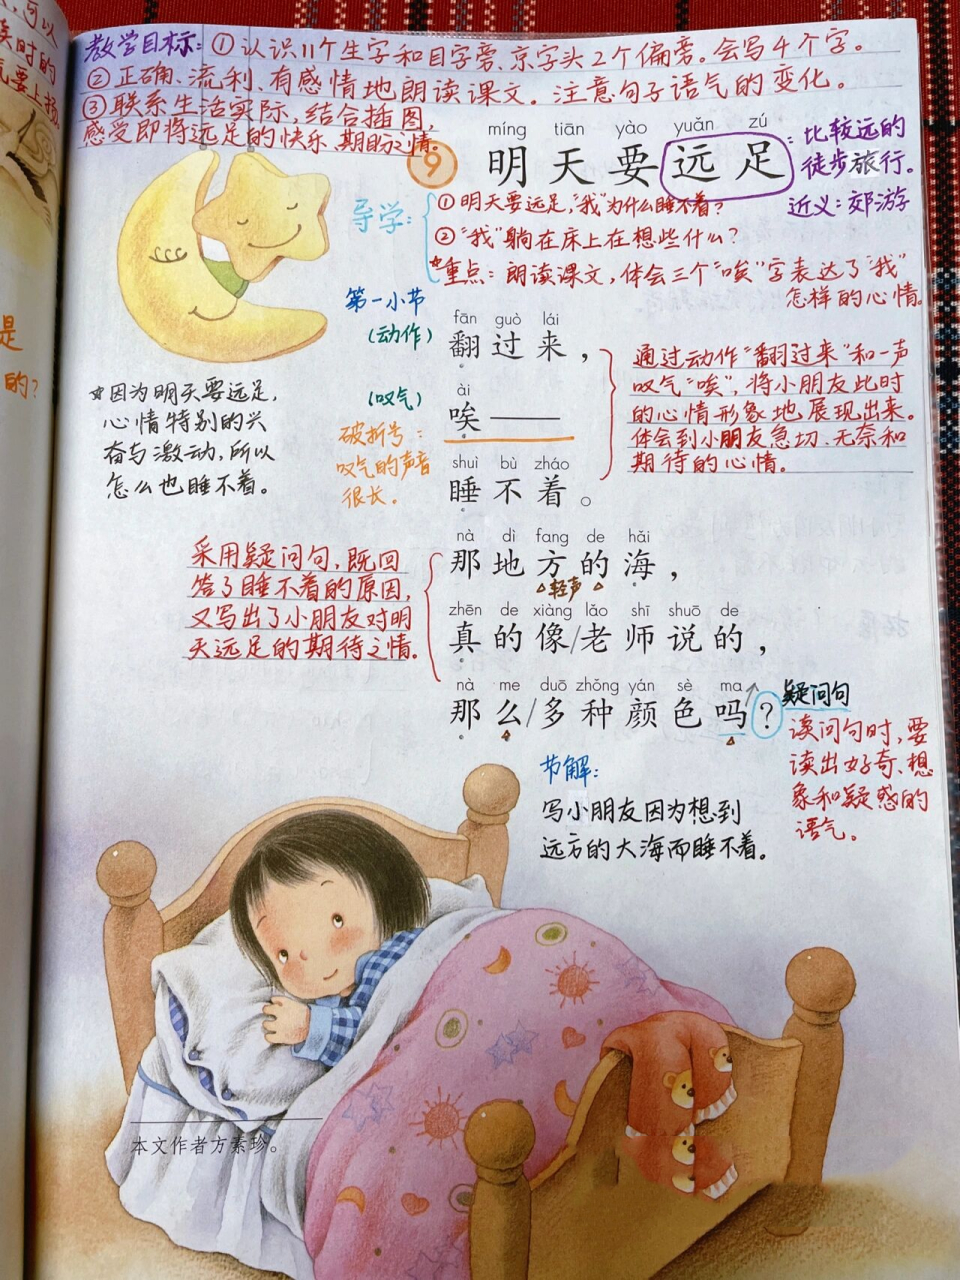 可以
读时的
气要上扬
是
的？
教学目标：①认识11个生字和目字旁、京字头2个偏旁。会写4个字。
②正确、流利、有感情地朗读课文。注意句子语气的变化。
③联系生活实际，结合插图，
感受即将远足的快乐、期盼之情。
míng tiān yào yuǎn zú
9 明天要远足
：比较远的
徒步旅行。
近义：郊游
导学：
①明天要远足，“我”为什么睡不着？
②“我”躺在床上在想些什么？
重点：朗读课文，体会三个“唉”字表达了“我”
怎样的心情。
第一小节
(动作)
fān guò lái
翻过来，
(叹气)
ài
唉——
破折号：
叹气的声音
很长。
shuì bù zháo
睡不着。
通过动作“翻过来”和一声
叹气“唉”，将小朋友此时
的心情形象地展现出来。
体会到小朋友急切、无奈和
期待的心情。
☆因为明天要远足，
心情特别的兴
奋与激动，所以
怎么也睡不着。
nà dì fang de hǎi
那地方的海，
△轻声△
zhēn de xiàng lǎo shī shuō de
真的像/老师说的，
nà me duō zhǒng yán sè ma
那么/多种颜色吗？
采用疑问句，既回
答了睡不着的原因，
又写出了小朋友对明
天远足的期待之情。
疑问句
读问句时，要
读出好奇、想
象和疑惑的
语气。
节解：
写小朋友因为想到
远方的大海而睡不着。
本文作者方素珍。